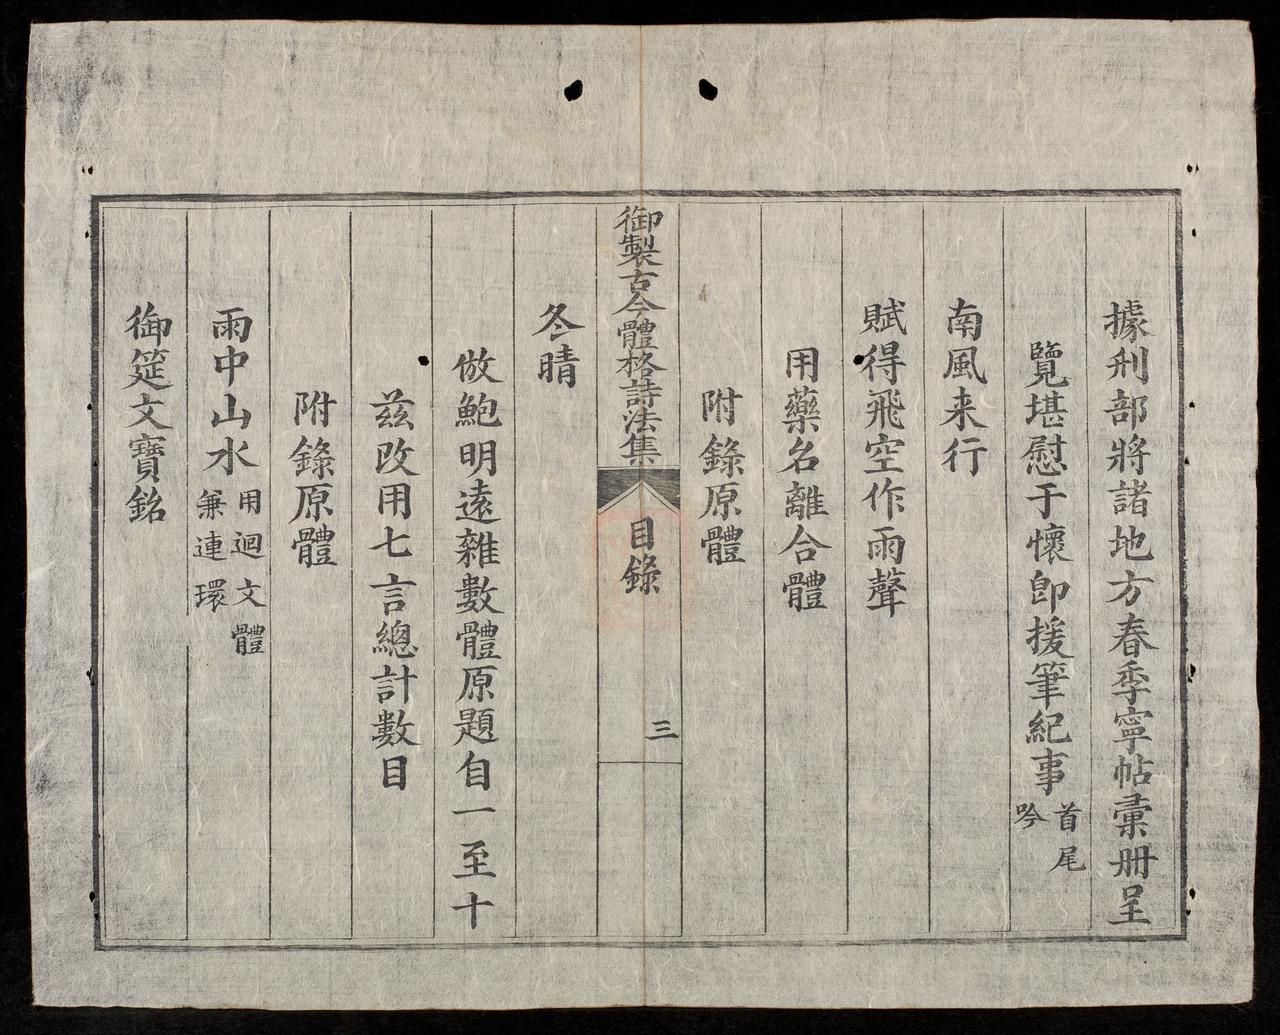 據刑部將諸地方春季寧帖彙册呈
覽堪慰于懷卽援筆紀事首尾
吟
南風来行
賦得飛空作雨聲
用藥名離合體
附錄原體
御製古今體格詩法集
目錄
三
冬晴
倣鮑明遠雜數體原題自一至十
兹改用七言總計數目
附錄原體
雨中山水用迴文體
兼連環
御筵文寶銘